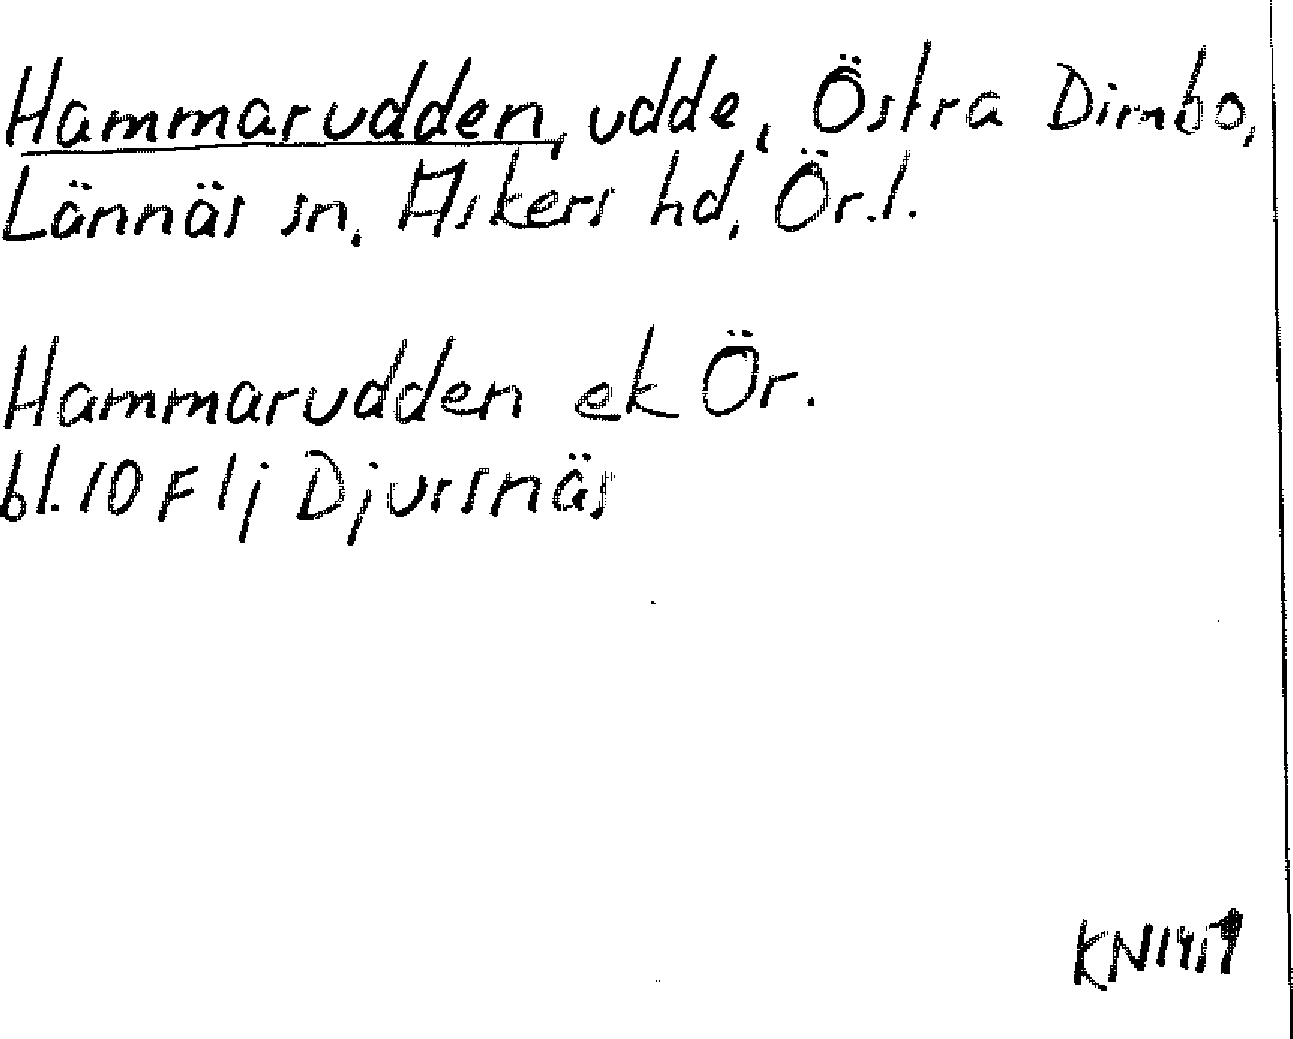 Hammarudden, udde, Östra Dimbo,
Lännäs sn, Askers hd, Ör.l.
Hammarudden ek Ör.
bl. 10 F 1j Djursnäs